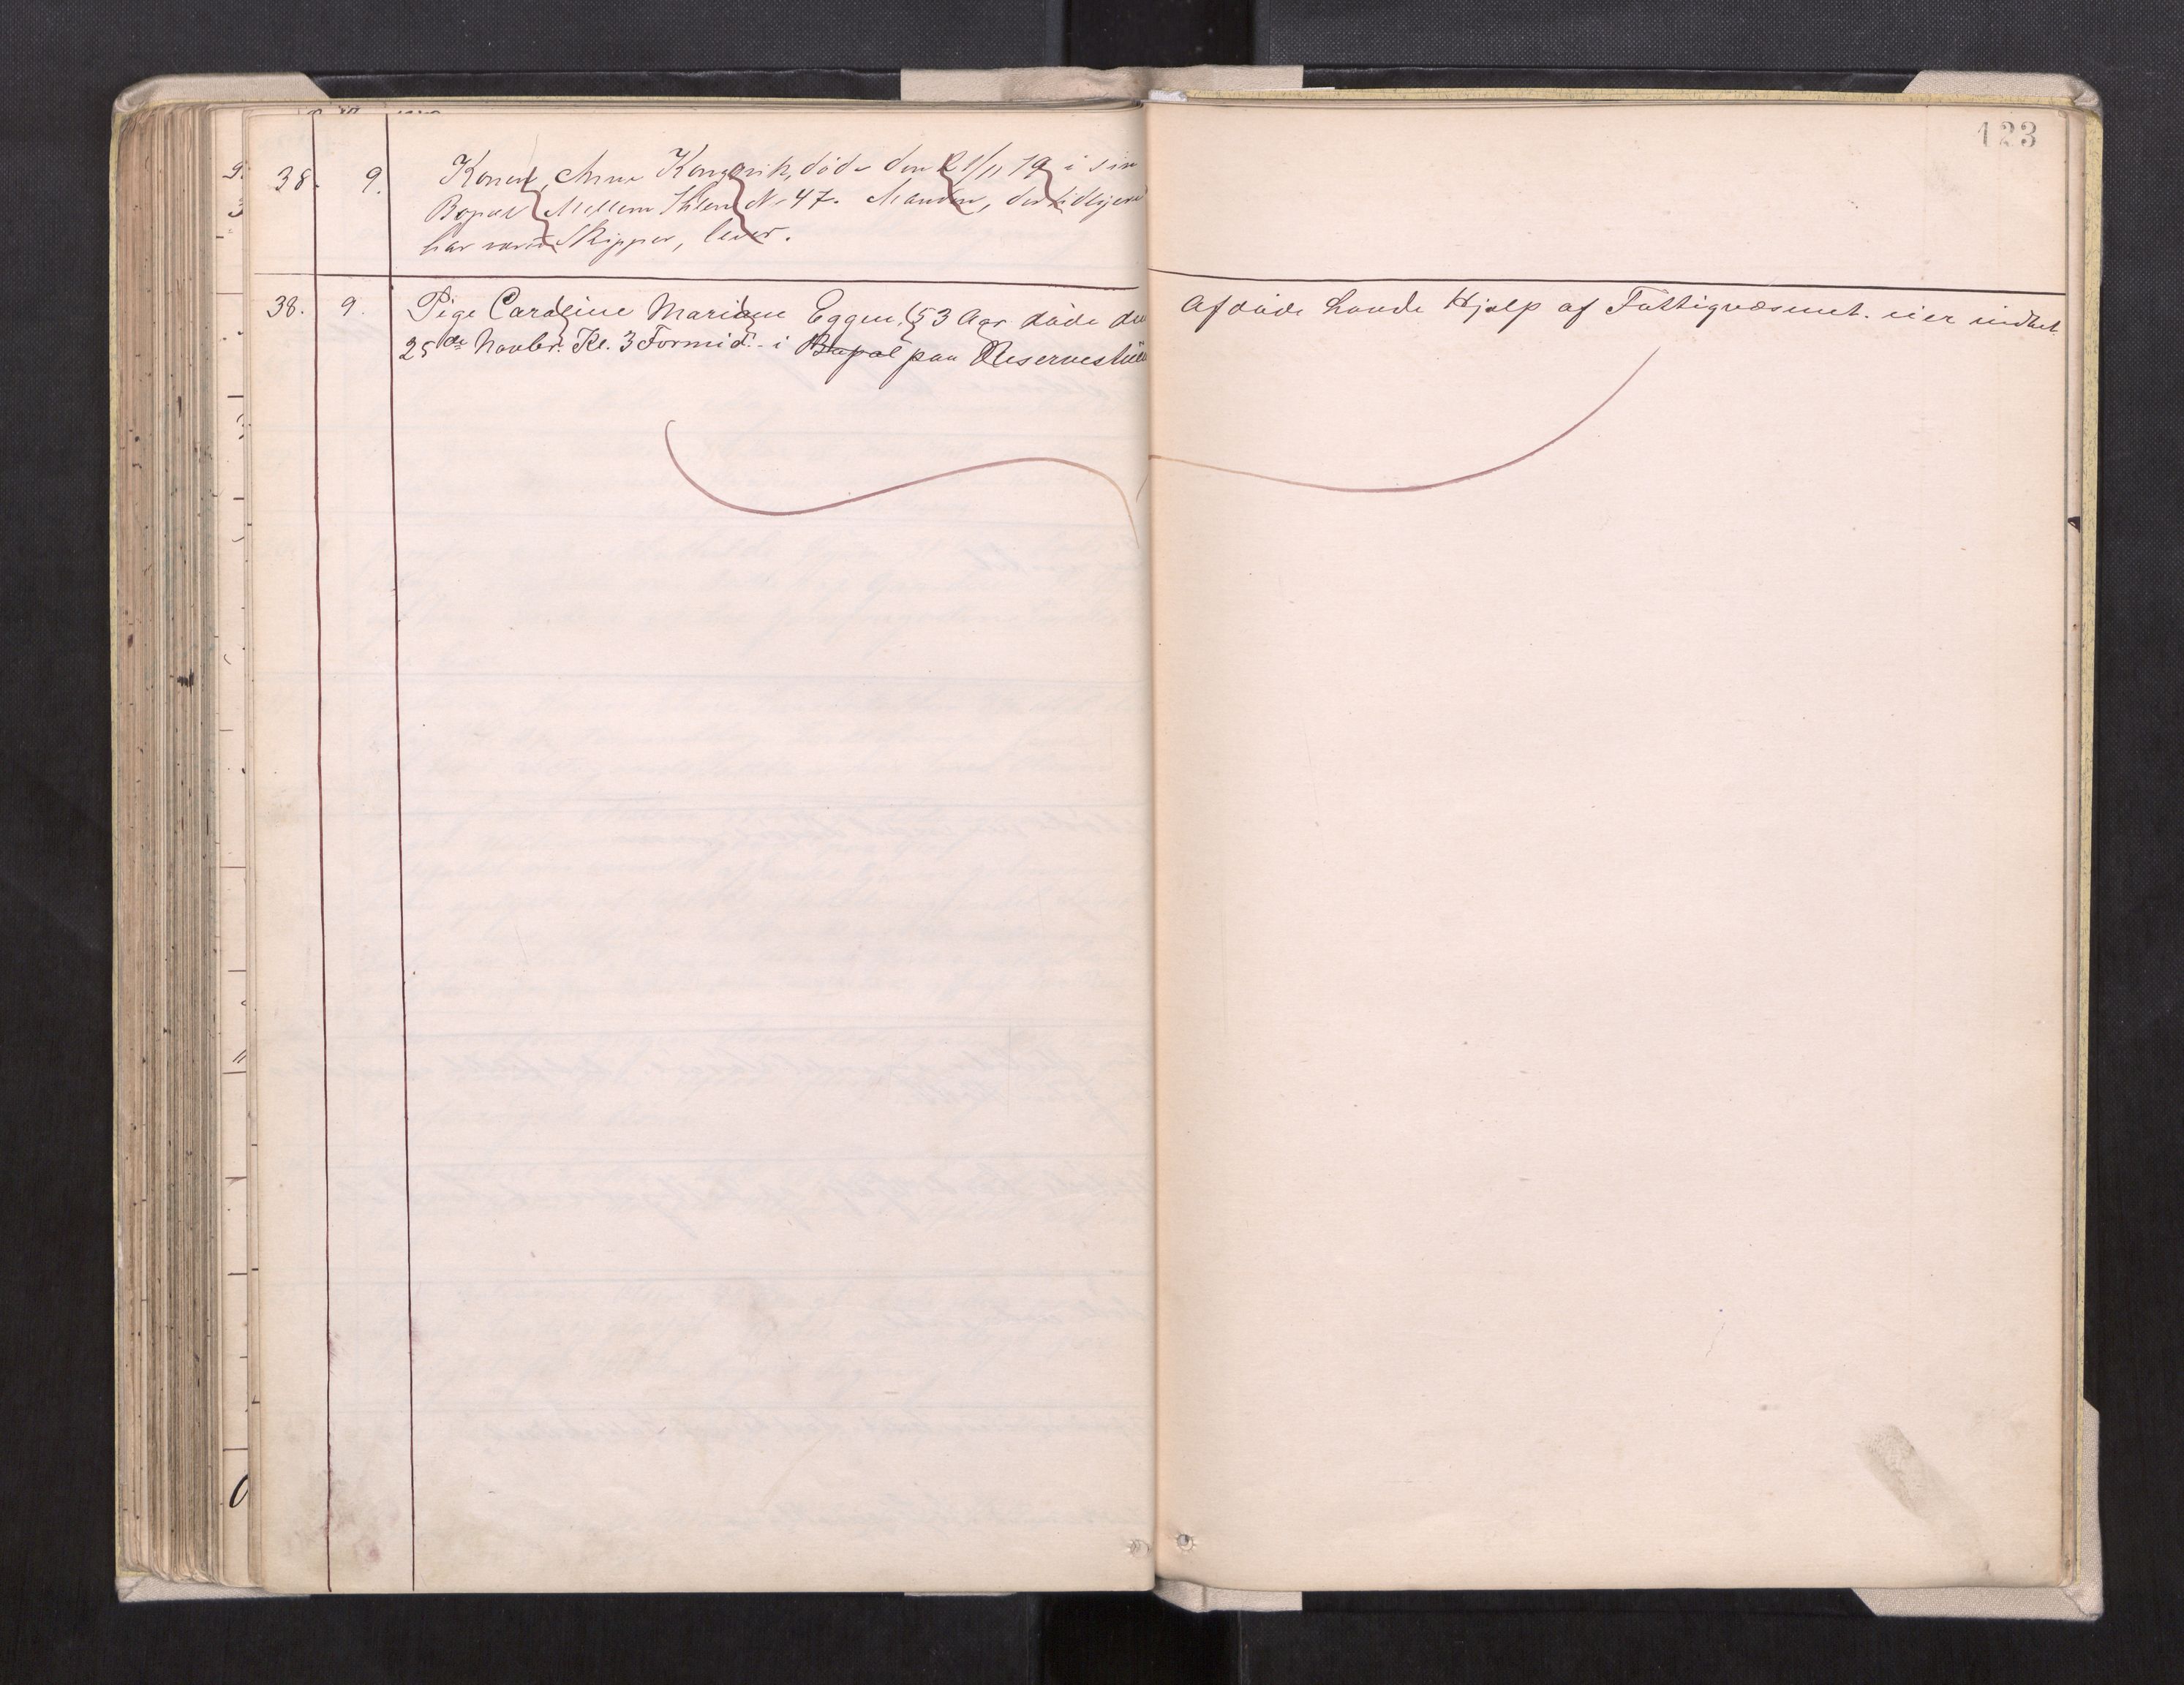 123
38. 9. Konen, Anne Kongsvik, døde den 21/11 79 i sin
Bopæl Mellem Ihlen No 47. Manden, der tidligere
har været Skipper, lever.
38. 9. Pige Caroline Mariane Eggen, 53 Aar døde den
25de Novbr. Kl. 3 Formid. i Bopæl paa
Afdøde havde Hjelp af Fattigvæsenet. eier intet